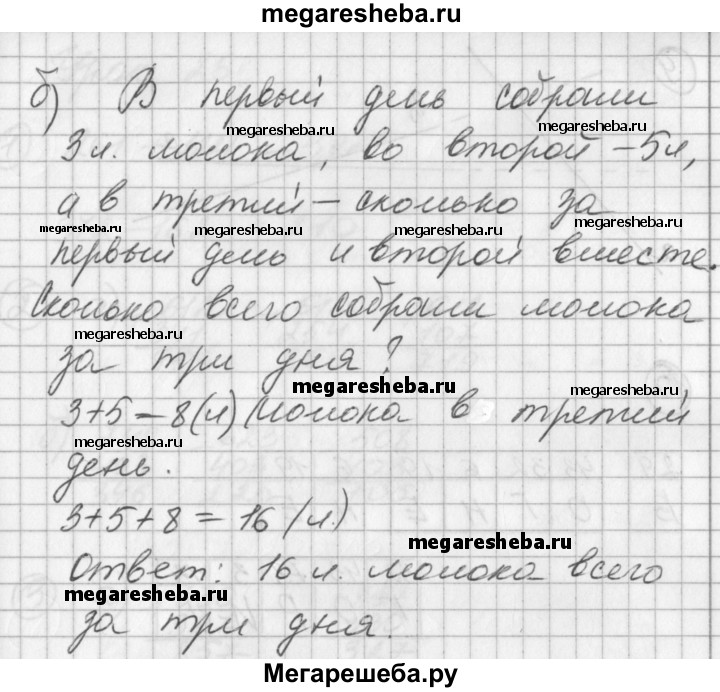 megaresheba.ru
б) В первый день собрали
megaresheba.ru megaresheba.ru
3 л. молока, во второй – 5 л,
megaresheba.ru
а в третий – сколько за
megaresheba.ru megaresheba.ru megaresheba.ru
первый день и второй вместе.
Сколько всего собрали молока
megaresheba.ru megaresheba.ru
за три дня?
megaresheba.ru megaresheba.ru
3+5=8(л) молока в третий
megaresheba.ru
день.
3+5+8=16 (л.)
megaresheba.ru megaresheba.ru
Ответ: 16 л. молока всего
megaresheba.ru
за три дня.
megaresheba.ru
Мегарешеба.ру